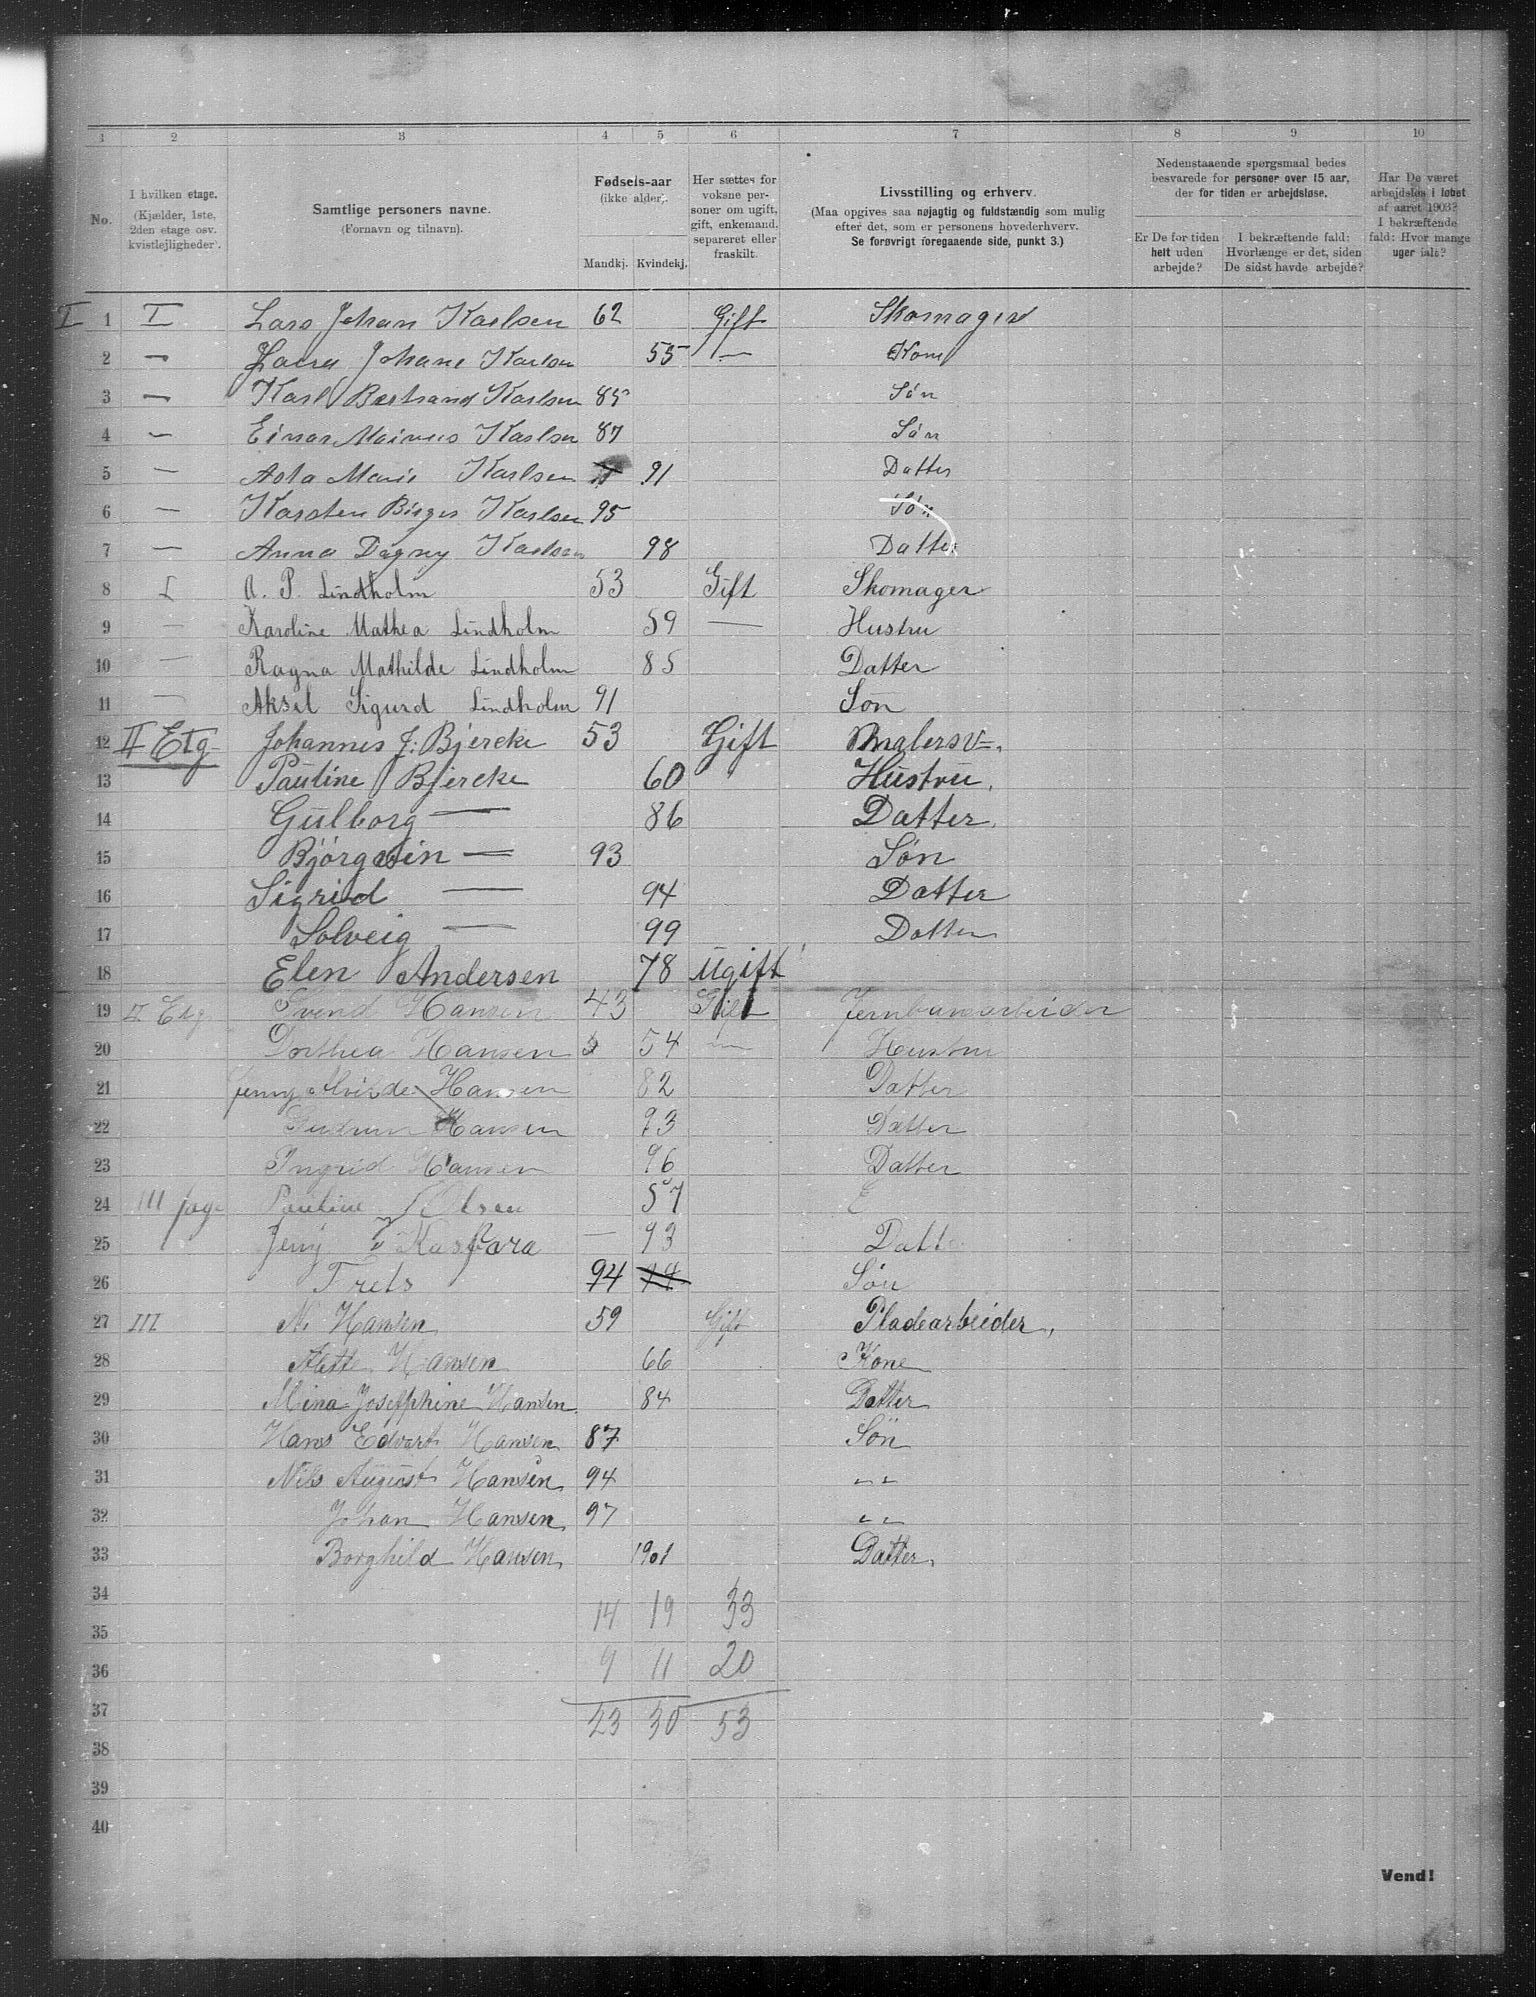 1 2 3 4 5 6 7 8 9 10
No.
I hvilken etage.
(Kjælder, 1ste,
2den etage osv.
kvistlejligheder).
Samtlige personers navne.
(Fornavn og tilnavn).
Fødsels-aar
(ikke alder).
Mandkj. Kvindekj.
Her sættes for
voksne per-
soner om ugift,
gift, enkemand,
separeret eller
fraskilt.
Livsstilling og erhverv.
(Maa opgives saa nøjagtig og fuldstændig som mulig
efter det, som er personens hovederhverv.
Se forøvrigt foregaaende side, punkt 3.)
Nedenstaaende spørgsmaal bedes
besvarede for personer over 15 aar,
der for tiden er arbejdsløse.
Er De for tiden
helt uden
arbejde?
I bekræftende fald:
Hvorlænge er det, siden
De sidst havde arbejde?
Har De været
arbejdsløs i løbet
af aaret 1903?
I bekræftende
fald: Hvor mange
uger ialt?
I 1 I Lars Johan Karlsen 62 Gift Skomager
2 — Laura Johane Karlsen 55 — Kone
3 — Karl Bertrand Karlsen 85 Søn
4 — Einar Karlsen 87 Søn
5 — Asta Marie Karlsen 91 Datter
6 — Karsten Birger Karlsen 95 Søn
7 — Anna Dagny Karlsen 98 Datter
8 I A. P. Lindholm 53 Gift Skomager
9 — Karoline Mathea Lindholm 59 — Hustru
10 — Ragna Mathilde Lindholm 85 Datter
11 — Aksel Sigurd Lindholm 91 Søn
12 II Etg. Johannes J. Bjercke 53 Gift Malersv.
13 Pauline Bjercke 60 " Hustru.
14 Gulborg — 86 Datter.
15 Bjørgvin — 93 Søn
16 Sigrid — 94 Datter
17 Solveig — 99 Datter
18 Elen Andersen 78 Ugift
19 II Etg. Svend Hansen 43 Gift Jernbanearbeider
20 Dorthea Hansen 54 — Hustru
21 Jenny Alvilde Hansen 82 Datter
22 Gudrun Hansen 93 Datter
23 Ingrid Hansen 96 Datter
24 III Pauline Olsen 57 E
25 Jeny Kaspara — 93 Datte
26 Frets 94 Søn
27 III N. Hansen 59 Gift Pladearbeider,
28 Hansen 66 Kone
29 Mina Josephine Hansen 84 Datter
30 Hans Edvart Hansen 87 Søn
31 Nils August Hansen 94 " "
32 Johan Hansen 97 " "
33 Borghild Hansen 1901 Datter,
34 14 19 33
35
36 9 11 20
37 23 30 53
38
39
40
Vend!